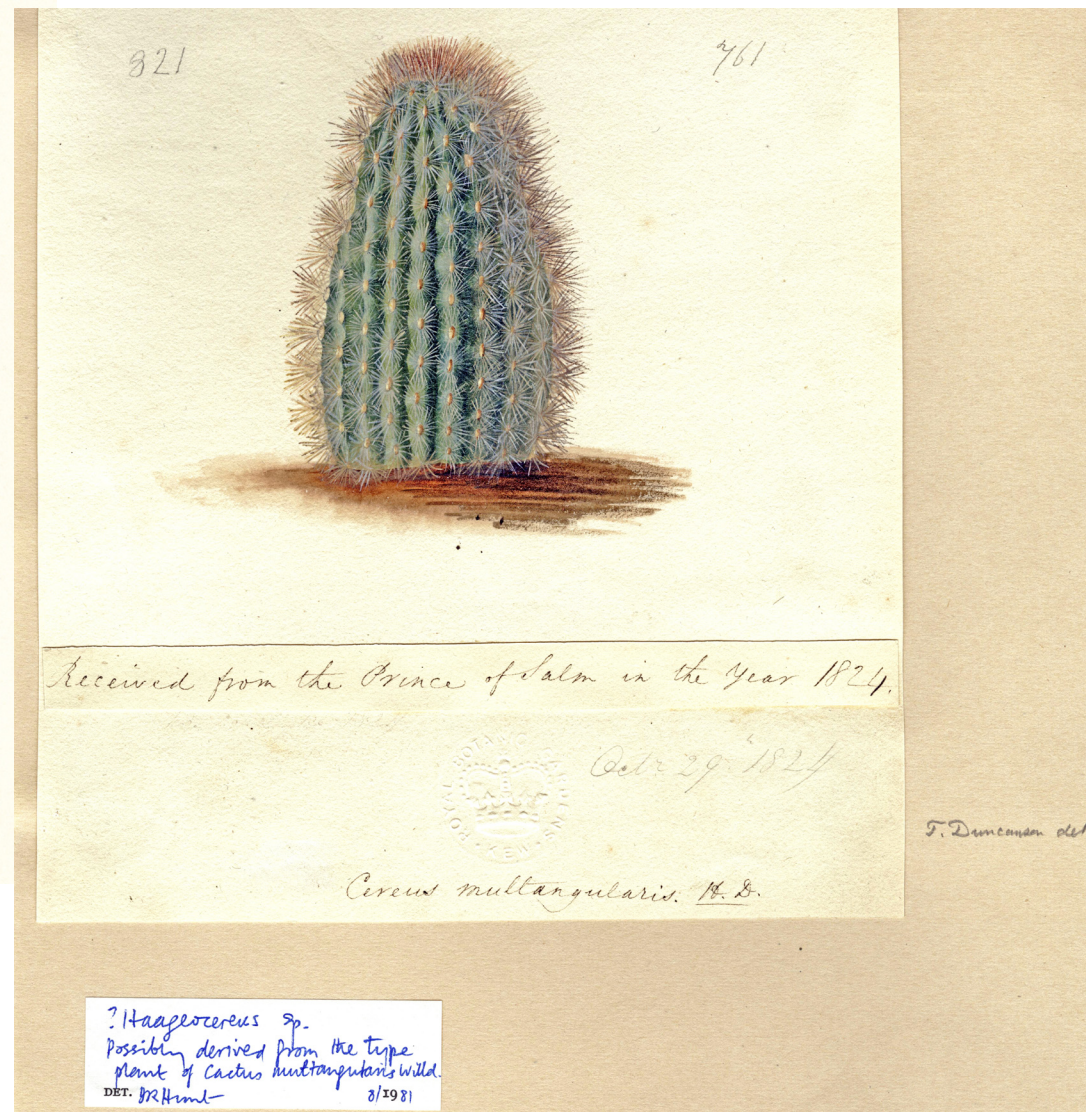 821
761
Received from the Prince of Salm in the Year 1824.
Octr 29th 1824
ROYAL BOTANIC GARDENS KEW
T. Duncanson del
Cereus multangularis. H. D.
? Haageocereus sp.
Possibly derived from the type
plant of Cactus multangularis Willd.
DET. DR Hunt 8/1981